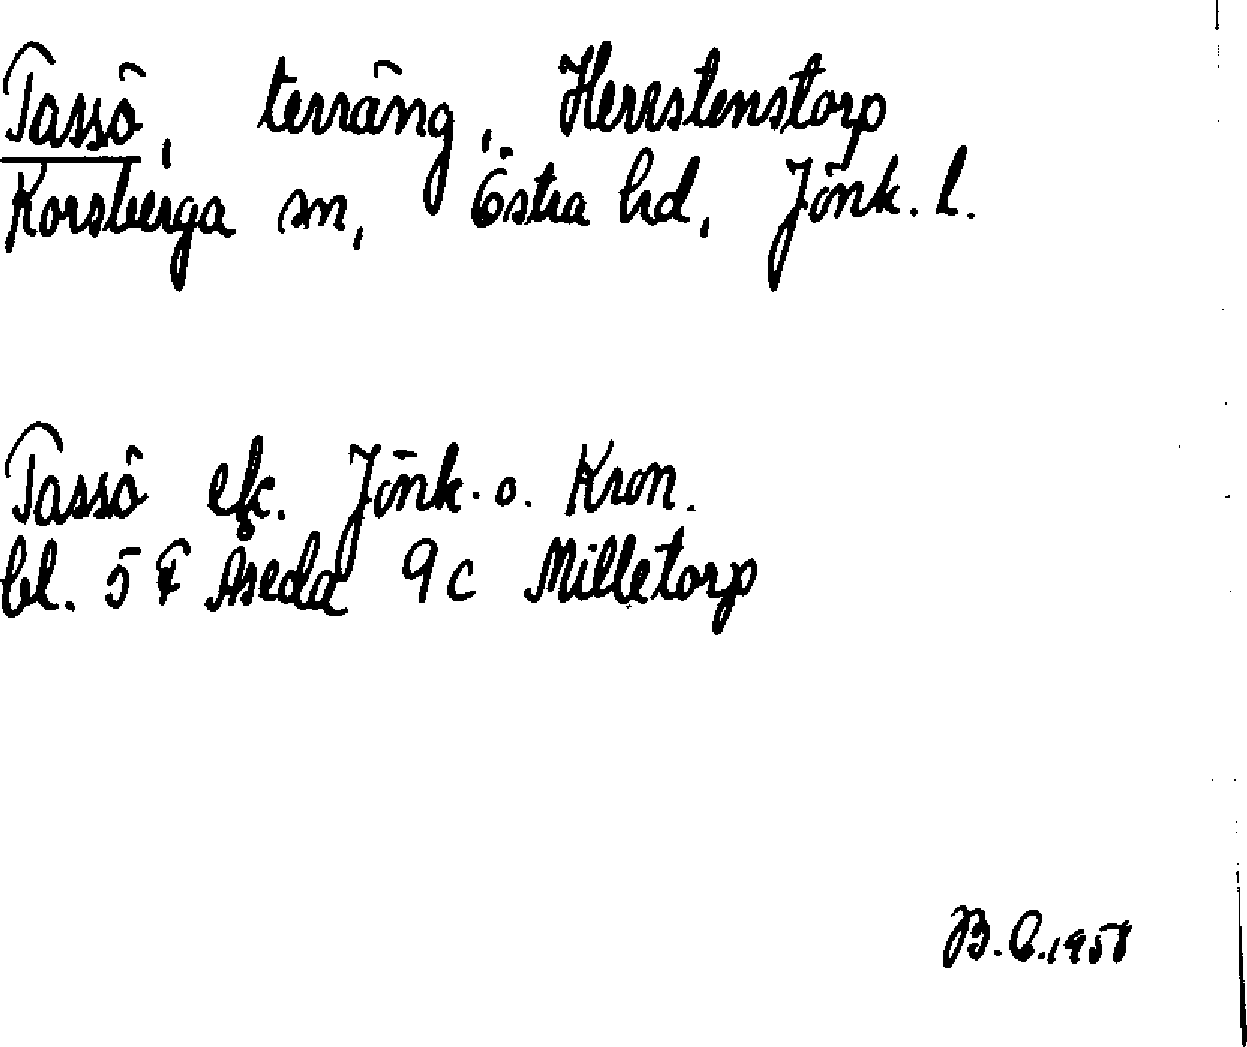 Tassö, terräng, Herrstenstorp
Korsberga sn, Östra hd, Jönk. l.
Tassö ek. Jönk. o. Kron.
bl. 5 F Åseda 9c Milletorp
B.C. 1958